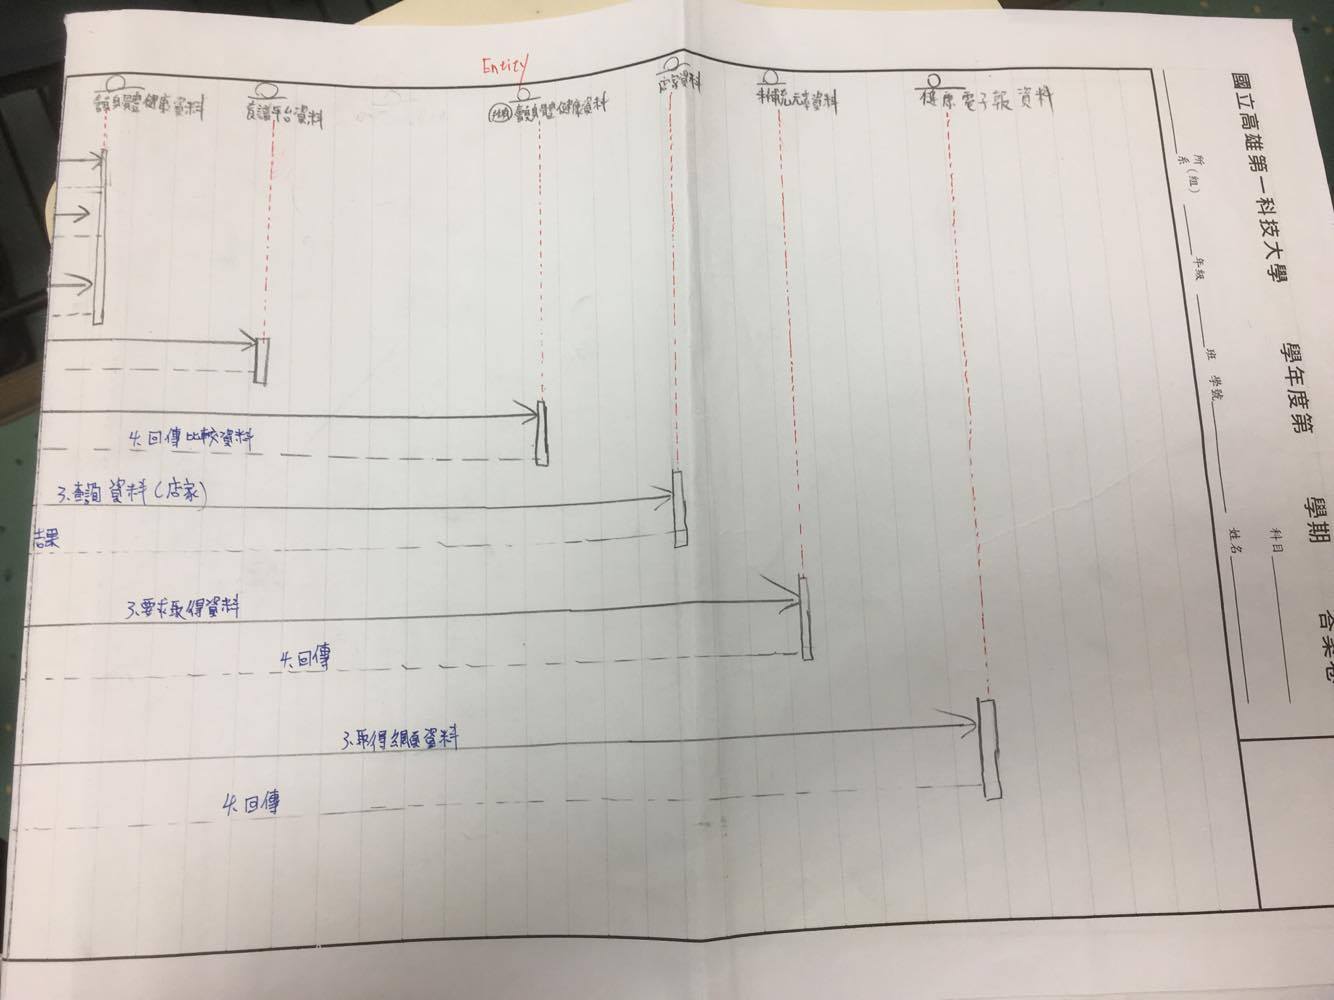 Entity
身體健康資料
平台資料
身體健康資料
店家資料
補充元素資料
健康電子報資料
4.回傳比較資料
3.查詢資料(店家)
結果
3.要求取得資料
4.回傳
3.取得網頁資料
4.回傳
國立高雄第一科技大學 學年度第 學期 答案卷
所(組)
系
年級
班
學號
姓名
科目